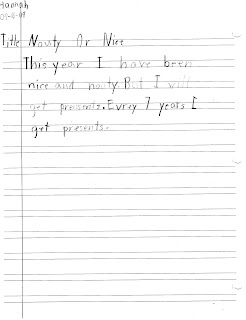 Hannah
Title Nouty Or Nice
This year I have been
nice and nouty. But I will
get presents. Evrey 7 years I
get presents.